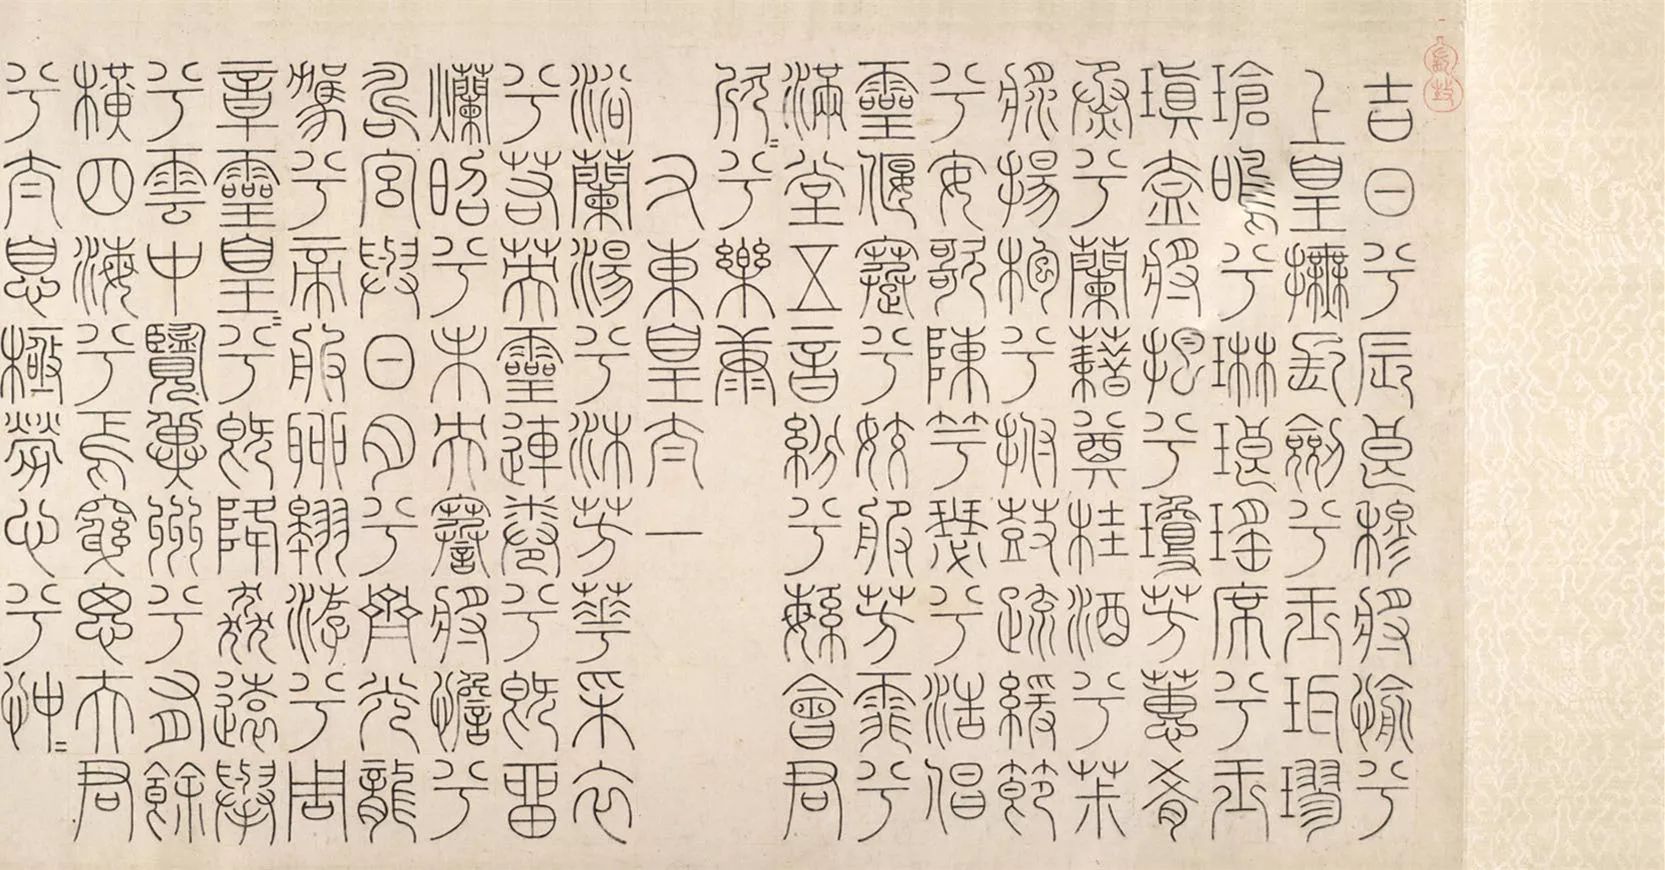 吉日兮辰良穆將愉兮
上皇撫長劍兮玉珥璆
瑲鳴兮琳琅瑤席兮玉
瑱盍將把兮瓊芳蕙肴
烝兮蘭藉奠桂酒兮茮
漿揚枹兮拊鼓疏緩節
兮安歌陳竽瑟兮浩倡
靈偃蹇兮姣服芳菲兮
滿堂五音紛兮繁會君
欣=兮樂康
右東皇太一
浴蘭湯兮沐芳華采衣
兮若英靈連蜷兮既留
爛昭兮未央謇將憺兮
壽宮與日月兮齊光龍
駕兮帝服聊翱游兮周
章靈皇=兮既降猋遠舉
兮雲中覽冀州兮有餘
橫四海兮焉窮思夫君
兮太息極勞心兮忡=